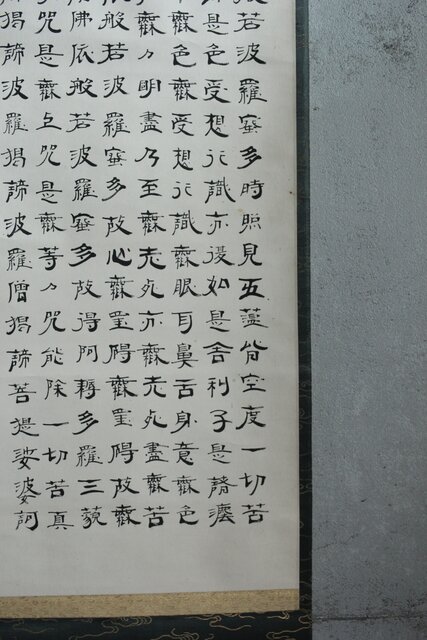 若波羅蜜多時照見五蘊皆空度一切苦
是色受想行識亦復如是舍利子是諸灋
無色無受想行識無眼耳鼻舌身意無色
無々明盡乃至無老死亦無老死盡無苦
般若波羅蜜多故心無罣碍無罣碍故無
佛依般若波羅蜜多故得阿耨多羅三藐
咒是無上咒是無等々咒能除一切苦真
揭諦波羅揭諦波羅僧揭諦菩提娑婆訶